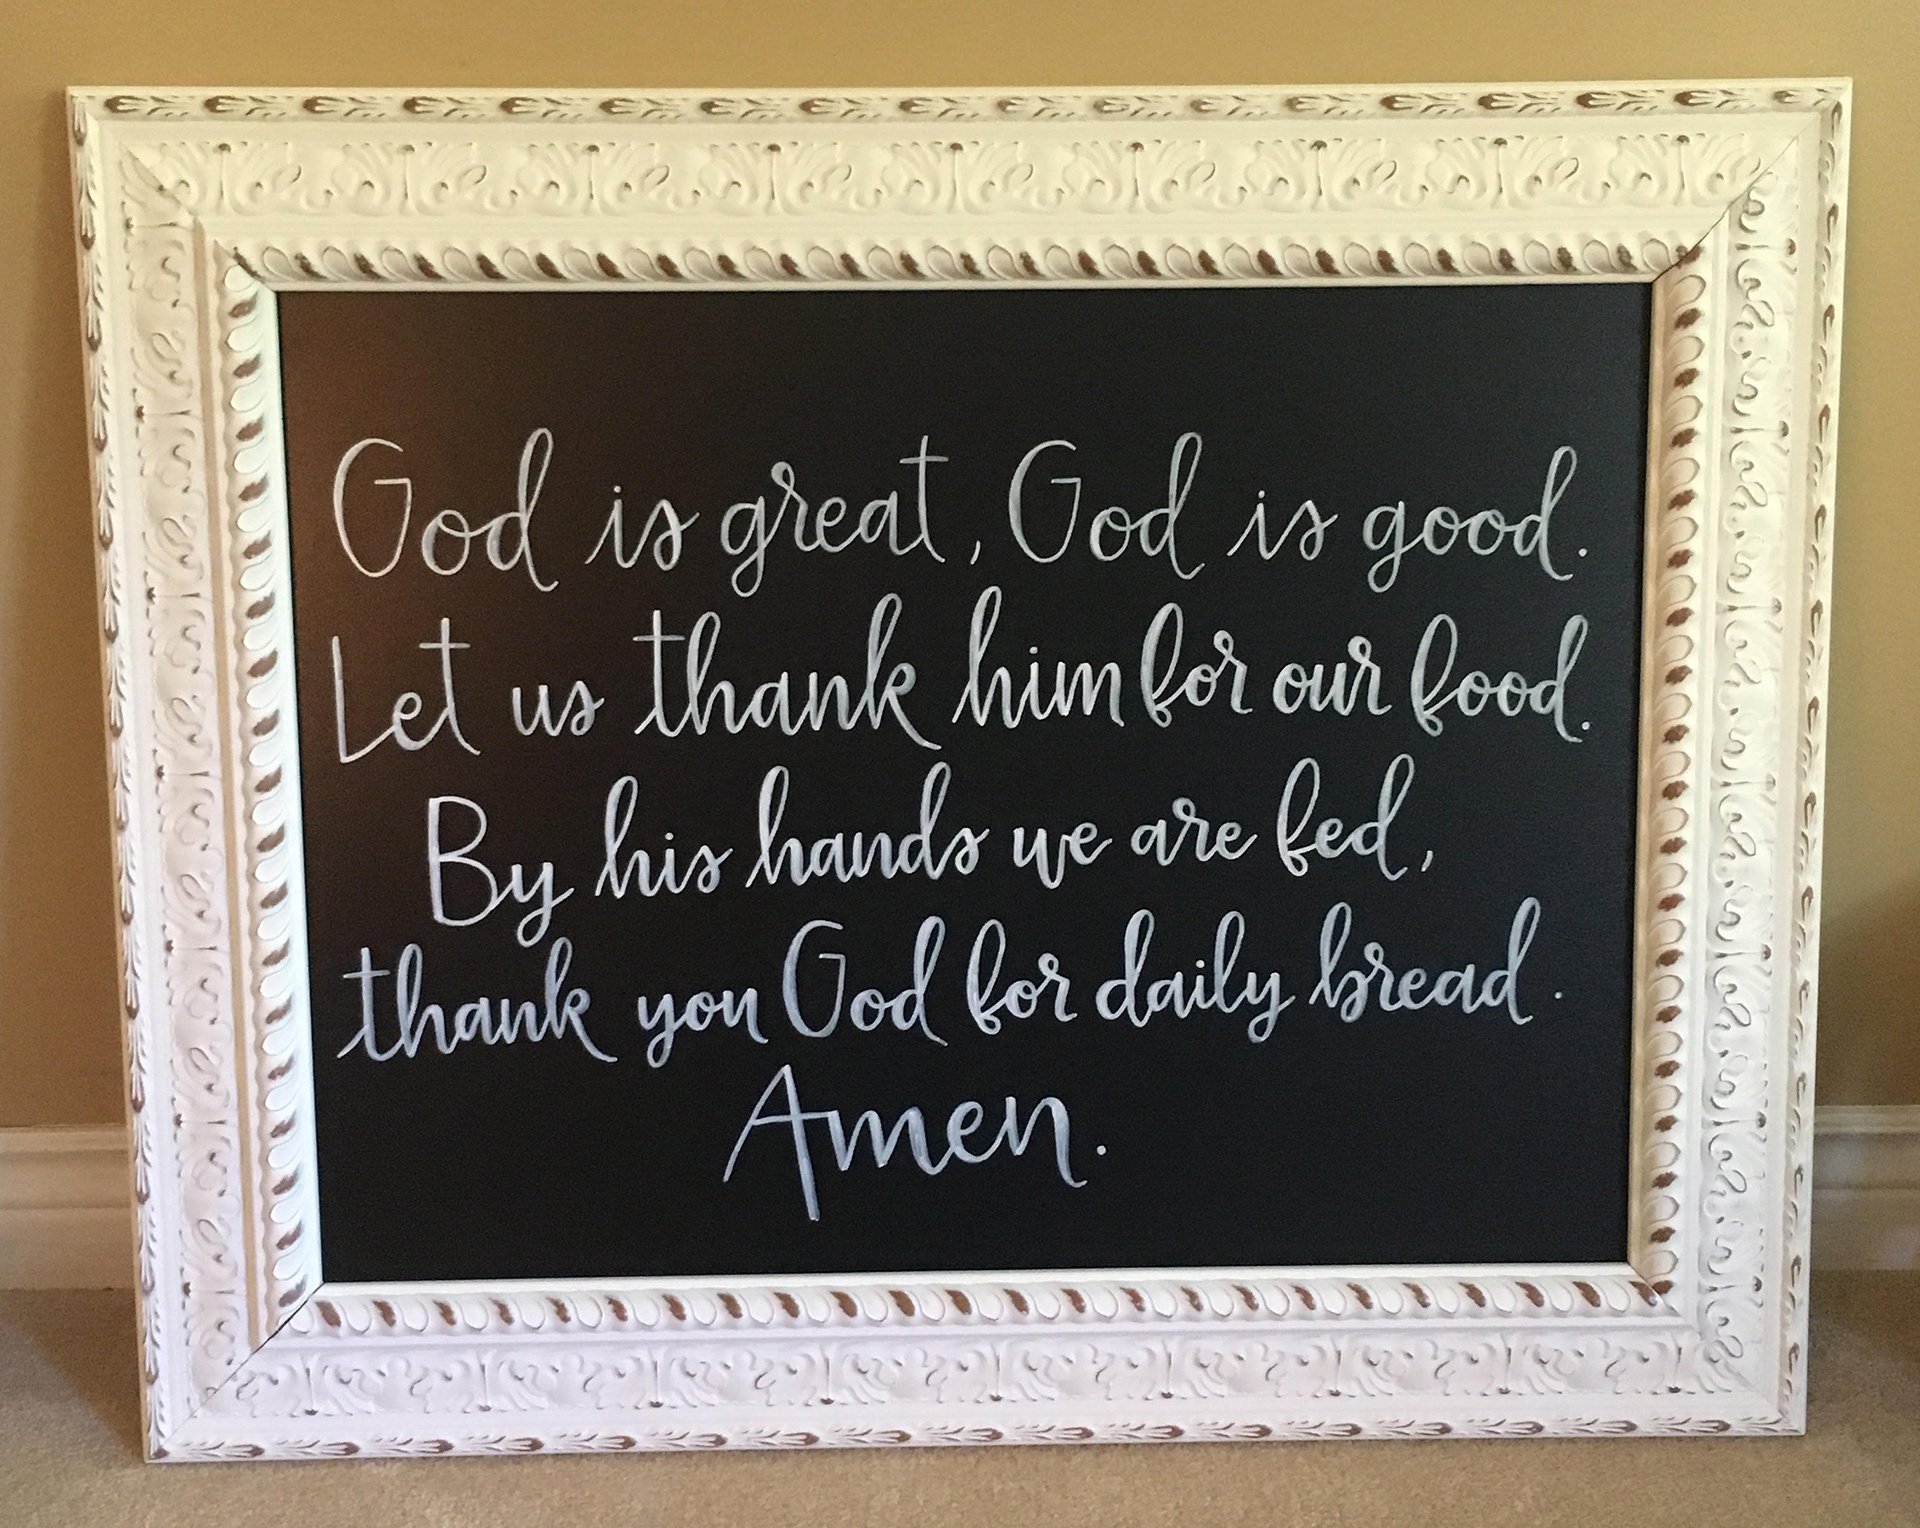 God is great, God is good.
Let us thank him for our food.
By his hands we are fed,
thank you God for daily bread.
Amen.